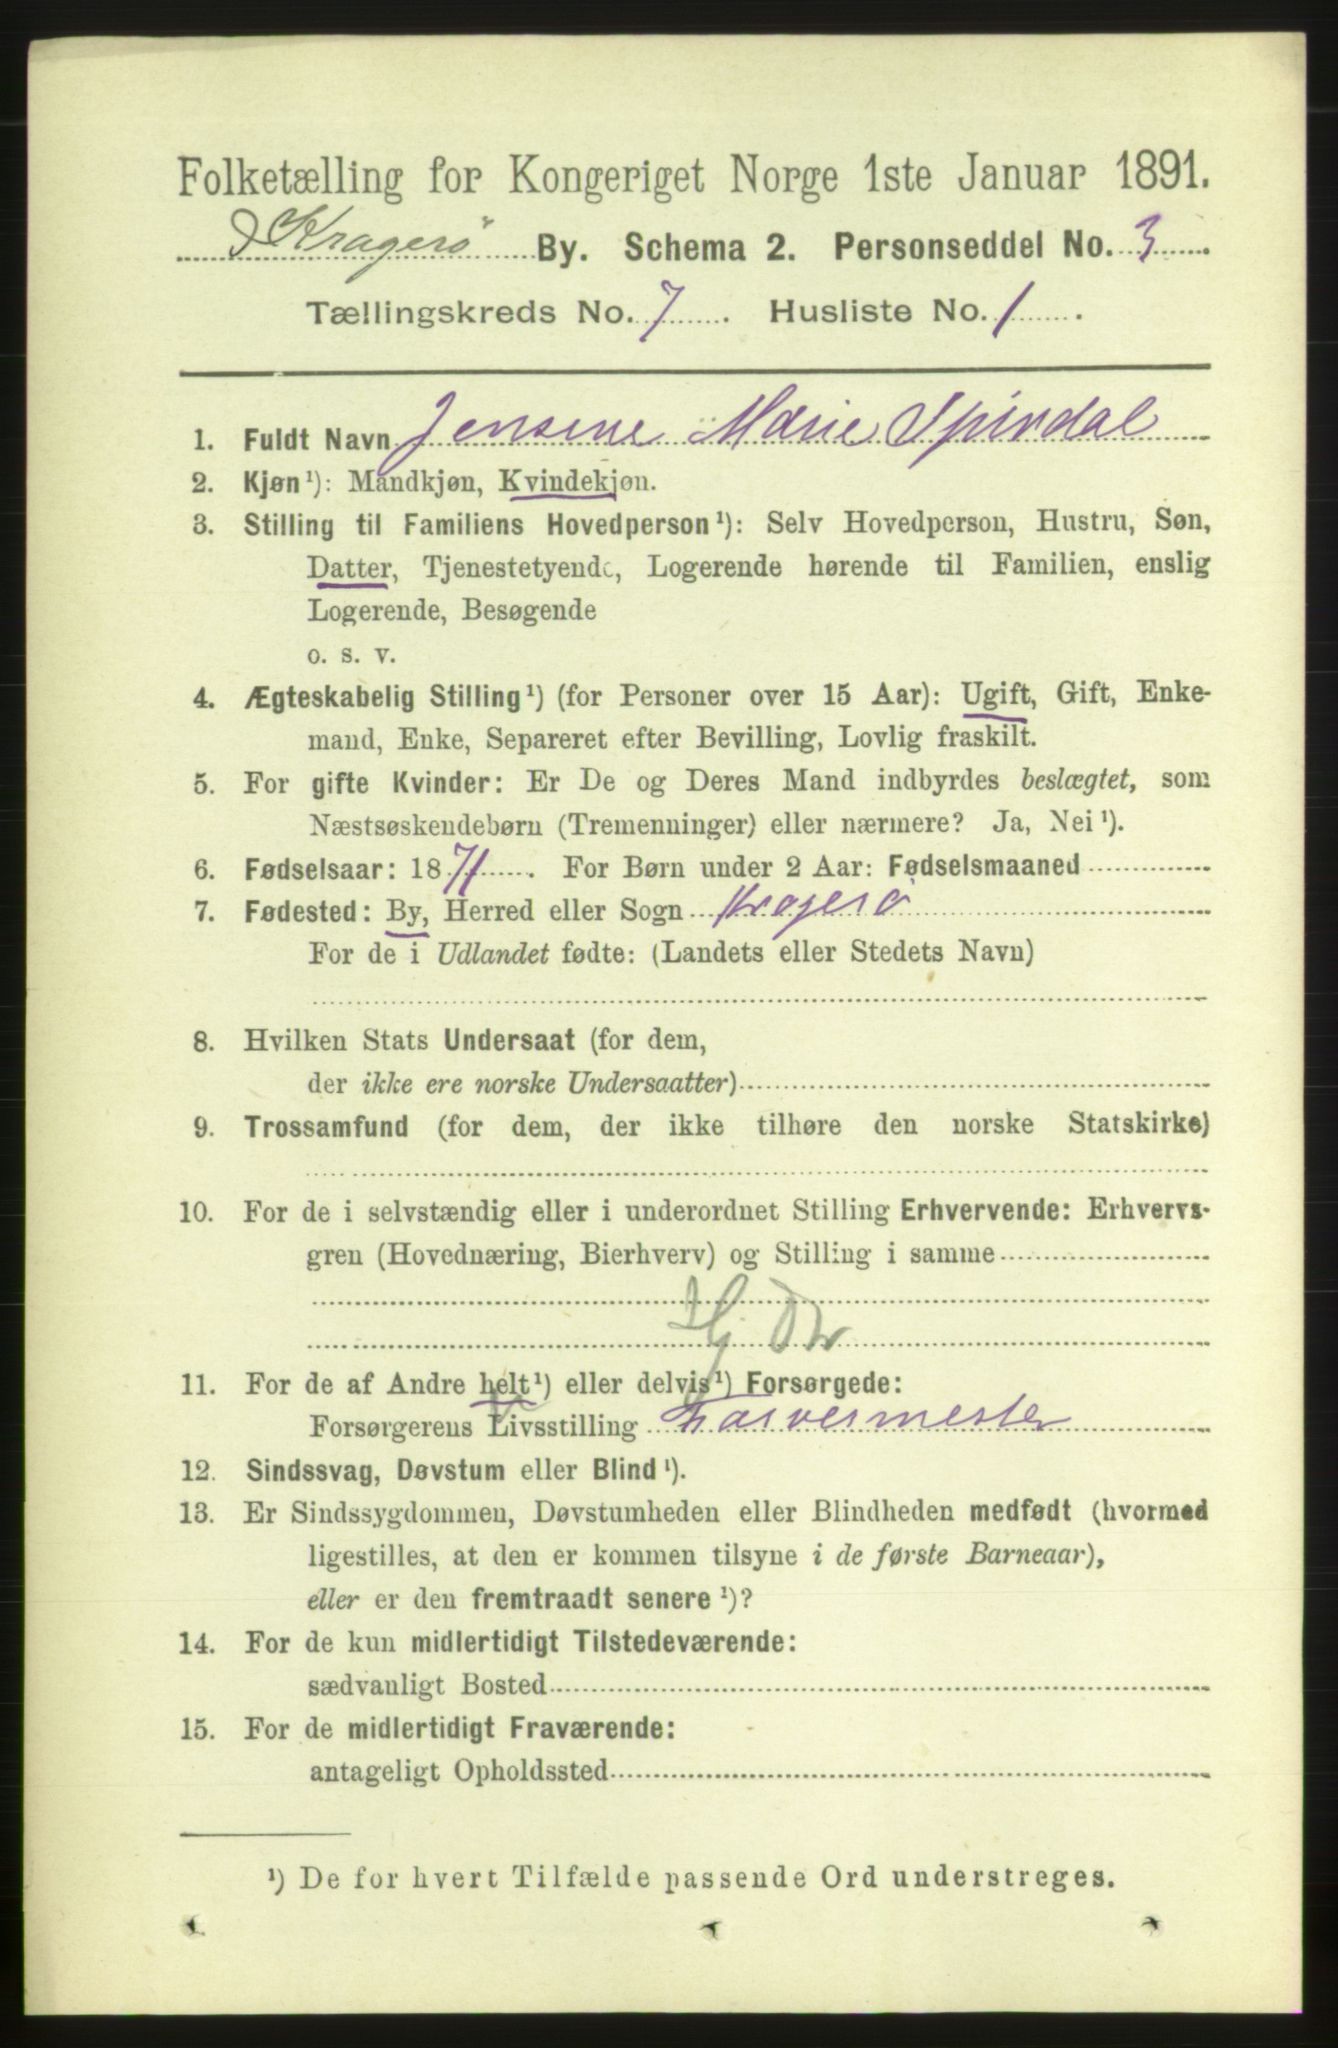 Folketælling for Kongeriget Norge 1ste Januar 1891.
Kragerø By. Schema 2. Personseddel No. 3
Tællingskreds No. 7. Husliste No. 1.
1. Fuldt Navn Jensine Marie Spindal
2. Kjøn¹): Mandkjøn, Kvindekjøn.
3. Stilling til Familiens Hovedperson¹): Selv Hovedperson, Hustru, Søn,
Datter, Tjenestetyende, Logerende hørende til Familien, enslig
Logerende, Besøgende
o. s. v.
4. Ægteskabelig Stilling¹) (for Personer over 15 Aar): Ugift, Gift, Enke-
mand, Enke, Separeret efter Bevilling, Lovlig fraskilt.
5. For gifte Kvinder: Er De og Deres Mand indbyrdes beslægtet, som
Næstsøskendebørn (Tremenninger) eller nærmere? Ja, Nei¹).
6. Fødselsaar: 1871. For Børn under 2 Aar: Fødselsmaaned
7. Fødested: By, Herred eller Sogn Kragerø
For de i Udlandet fødte: (Landets eller Stedets Navn)
8. Hvilken Stats Undersaat (for dem,
der ikke ere norske Undersaatter)
9. Trossamfund (for dem, der ikke tilhøre den norske Statskirke)
10. For de i selvstændig eller i underordnet Stilling Erhvervende: Erhvervs-
gren (Hovednæring, Bierhverv) og Stilling i samme
11. For de af Andre helt¹) eller delvis¹) Forsørgede:
Forsørgerens Livsstilling Farvermester
12. Sindssvag, Døvstum eller Blind¹).
13. Er Sindssygdommen, Døvstumheden eller Blindheden medfødt (hvormed
ligestilles, at den er kommen tilsyne i de første Barneaar),
eller er den fremtraadt senere¹)?
14. For de kun midlertidigt Tilstedeværende:
sædvanligt Bosted
15. For de midlertidigt Fraværende:
antageligt Opholdssted
¹) De for hvert Tilfælde passende Ord understreges.